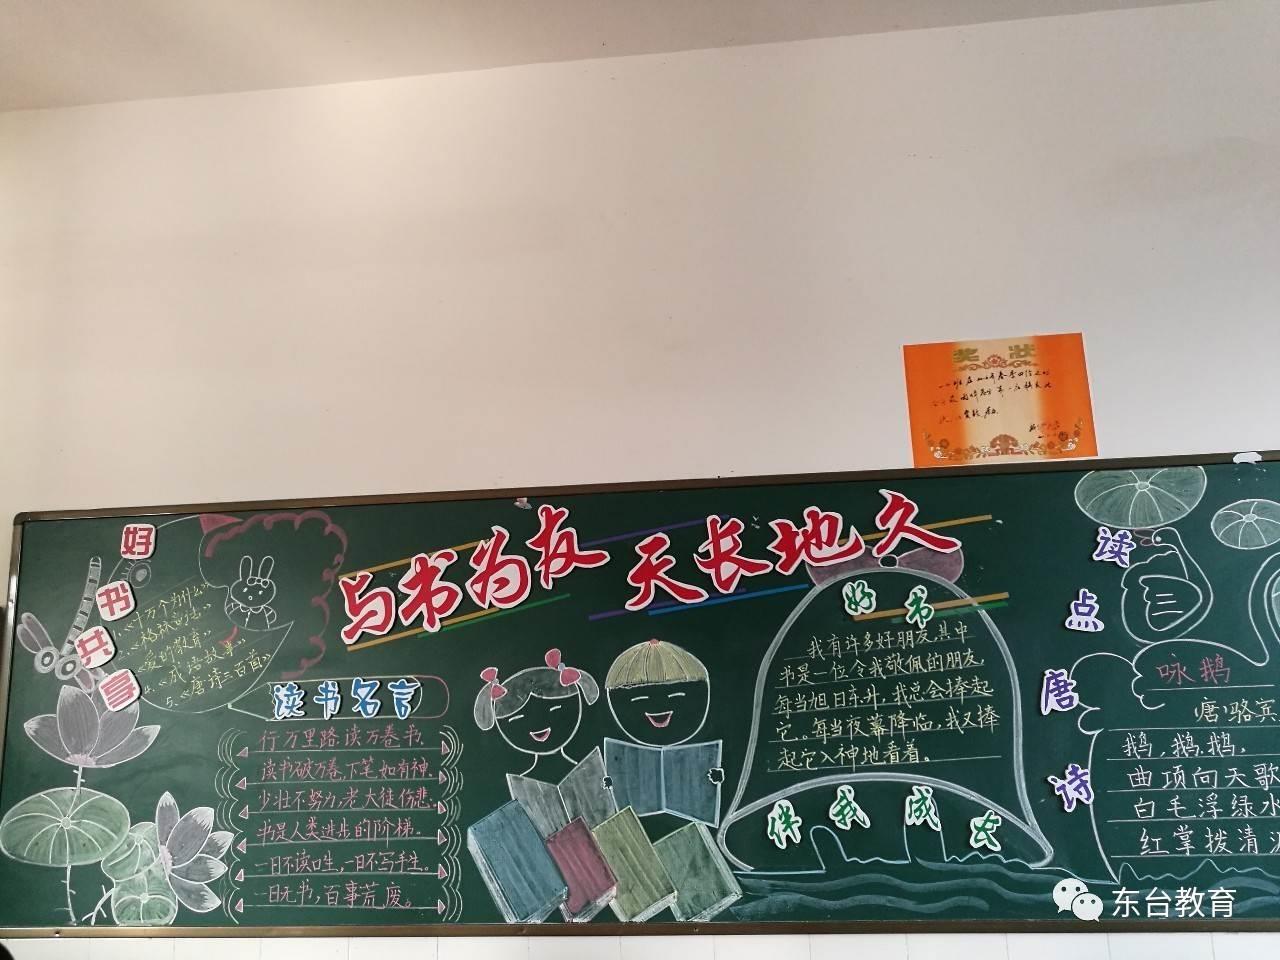 奖状
与书为友 天长地久
好书共享
1.《十万个为什么》
2.《格林童话》
3.《爱的教育》
4.《成语故事》
5.《唐诗三百首》
读书名言
行万里路,读万卷书.
读书破万卷,下笔如有神.
少壮不努力,老大徒伤悲.
书是人类进步的阶梯.
一日不读口生,一日不写手生。
一日无书,百事荒废。
好书
我有许多好朋友,其中
书是一位令我敬佩的朋友,
每当旭日东升,我总会捧起
它。每当夜幕降临,我又捧
起它入神地看着。
伴我成长
读点唐诗
咏鹅
唐·骆宾
鹅,鹅,鹅,
曲项向天歌
白毛浮绿水
红掌拨清波
东台教育